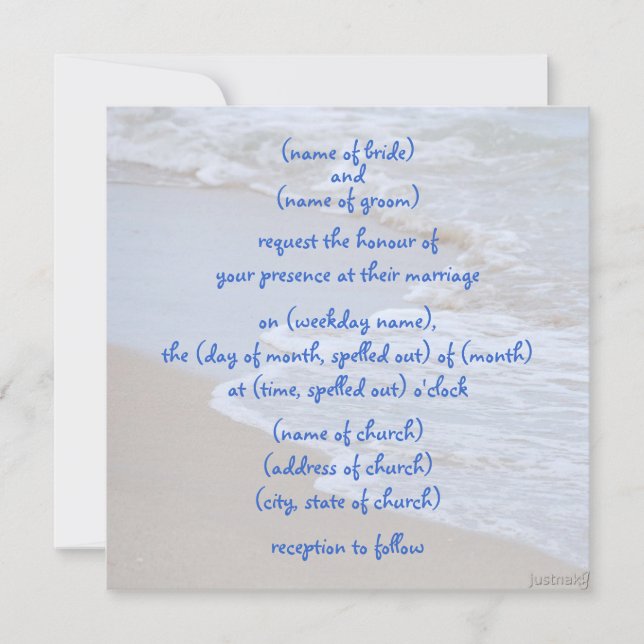 (name of bride)
and
(name of groom)
request the honour of
your presence at their marriage
on (weekday name),
the (day of month, spelled out) of (month)
at (time, spelled out) o'clock
(name of church)
(address of church)
(city, state of church)
reception to follow
justnak9